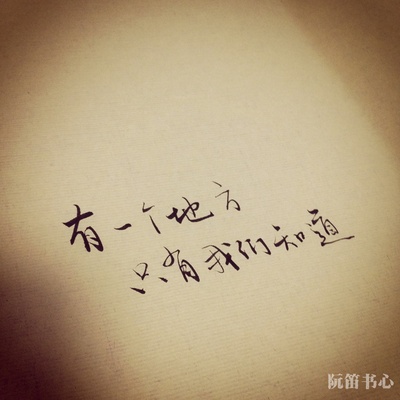 有一个地方
只有我们知道
阮笛书心